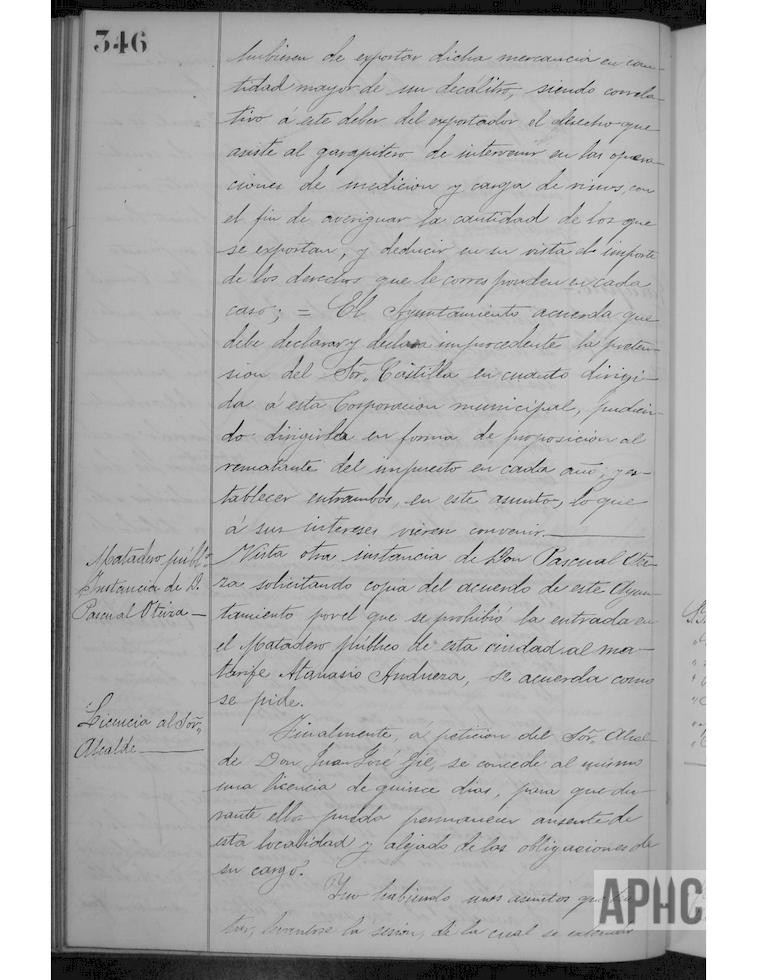 346
hubiesen de exportar dicha mercancia en can-
tidad mayor de un decálitro, siendo correla-
tivo á este deber del exportador el derecho que
asiste al garapitero de intervenir en las opera-
ciones de medicion y carga de vinos, con
el fin de averiguar la cantidad de los que
se exportan, y deducir en su vista el importe
de los derechos que le corresponden en cada
caso; = El Ayuntamiento acuerda que
debe declarar y declara improcedente la preten-
sion del Sor. Castilla en cuanto dirigi-
da á esta Corporacion municipal, pudien-
do dirigirla en forma de proposicion al
rematante del impuesto en cada año, y es-
tablecer entrambos, en este asunto, lo que
á sus intereses vieren convenir.
Matadero públo.
Instancia de D.
Pascual Oteiza
Vista otra instancia de Don Pascual Otei-
za solicitando copia del acuerdo de este Ayun-
tamiento por el que se prohibió la entrada en
el Matadero público de esta ciudad al ma-
tarife Atanasio Andueza, se acuerda como
se pide.
Licencia al Sor.
Alcalde
Finalmente, á peticion del Sor. Alcal-
de Don Juan José Gil, se concede al mismo
una licencia de quince dias, para que du-
rante ellos pueda permanecer ausente de
esta localidad y alejado de las obligaciones de
su cargo.
Y no habiendo mas asuntos que tra-
tar, levantose la sesion, de la cual se extiende
APHC